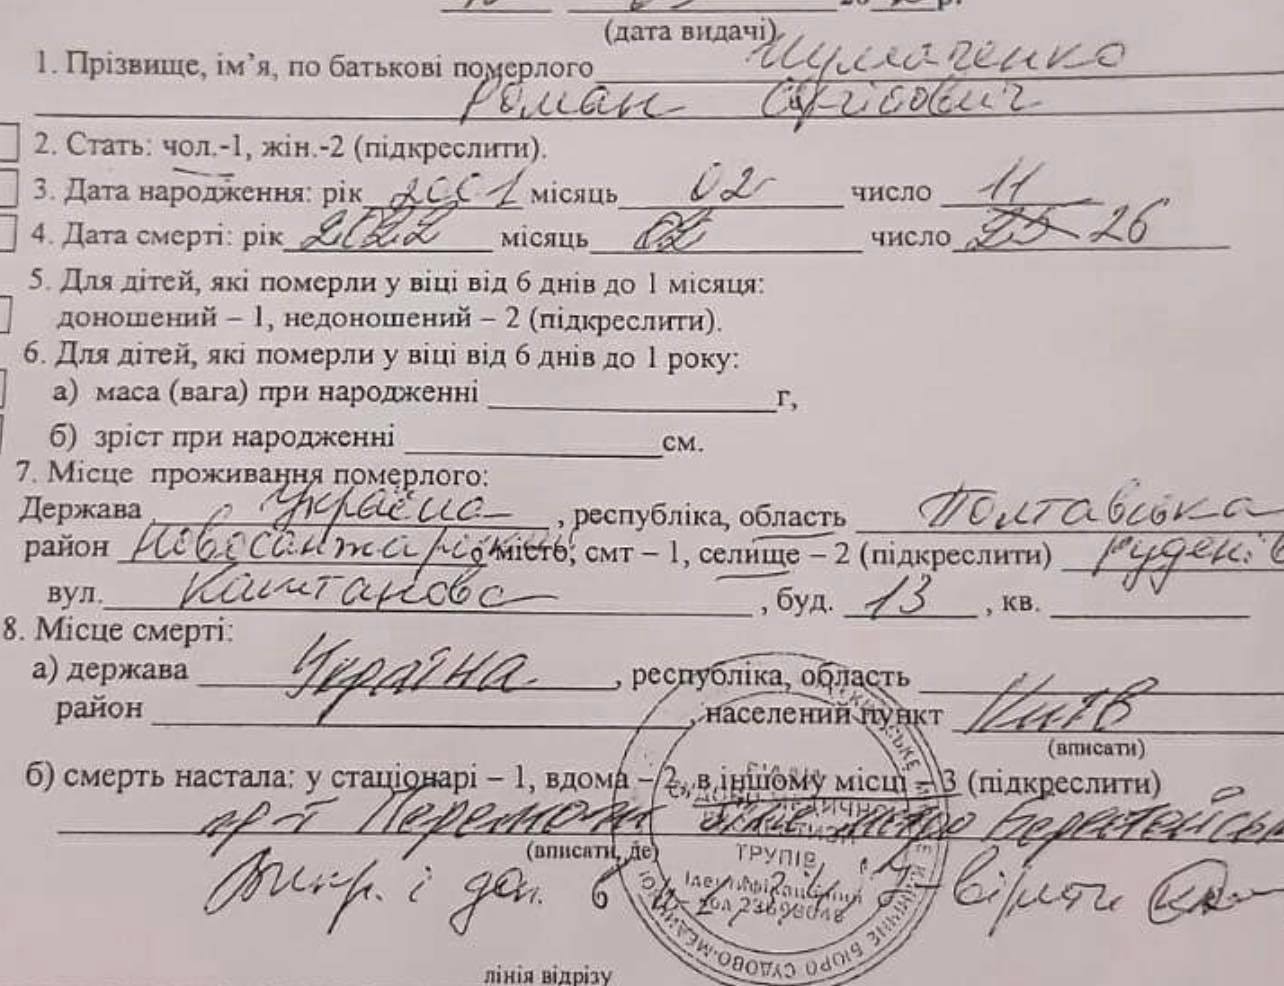 (дата видачі)
1. Прізвище, ім’я, по батькові померлого
Роман
2. Стать: чол.-1, жін.-2 (підкреслити).
3. Дата народження: рік 2001 місяць 02 число 11
4. Дата смерті: рік 2022 місяць 02 число 25 26
5. Для дітей, які померли у віці від 6 днів до 1 місяця:
доношений – 1, недоношений – 2 (підкреслити).
6. Для дітей, які померли у віці від 6 днів до 1 року:
а) маса (вага) при народженні г,
б) зріст при народженні см.
7. Місце проживання померлого:
Держава Україна , республіка, область Полтавська
район місто, смт – 1, селище – 2 (підкреслити)
вул. Каштанова , буд. 13 , кв.
8. Місце смерті:
а) держава Україна , республіка, область
район , населений пункт Київ
(вписати)
б) смерть настала: у стаціонарі – 1, вдома – 2, в іншому місці – 3 (підкреслити)
пр-т Перемоги біля метро
(вписати, де)
Випр. і доп. вірити
ТРУПІВ
лінія відрізу